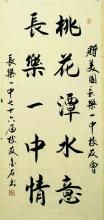 贈美國長樂一中校友會
桃花潭水意
長樂一中情
長樂一中七十六届校友